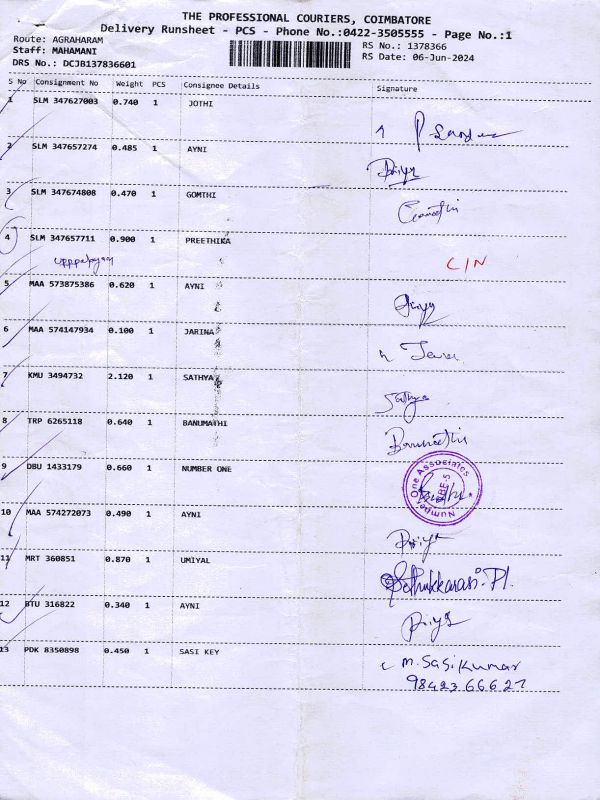 THE PROFESSIONAL COURIERS, COIMBATORE
Delivery Runsheet - PCS - Phone No.:0422-3505555 - Page No.:1
Route: AGRAHARAM
Staff: MAHAMANI
DRS No.: DCJB137836601
RS No.: 1378366
RS Date: 06-Jun-2024
S No Consignment No Weight PCS Consignee Details Signature
1 SLM 347627003 0.740 1 JOTHI
2 SLM 347657274 0.485 1 AYNI
Priya
3 SLM 347674808 0.470 1 GOMTHI
Gomathi
4 SLM 347657711 0.900 1 PREETHIKA
C/N
5 MAA 573875386 0.620 1 AYNI
Priya
6 MAA 574147934 0.100 1 JARINA
7 KMU 3494732 2.120 1 SATHYA
Sathya
8 TRP 6265118 0.640 1 BANUMATHI
Banumathi
9 DBU 1433179 0.660 1 NUMBER ONE
Number One Associates
10 MAA 574272073 0.490 1 AYNI
Priya
11 MRT 360851 0.870 1 UMIYAL
Sethukkarasi.Pl.
12 BTU 316822 0.340 1 AYNI
Priya
13 PDK 8350898 0.450 1 SASI KEY
M.Sasikumar
9842366627